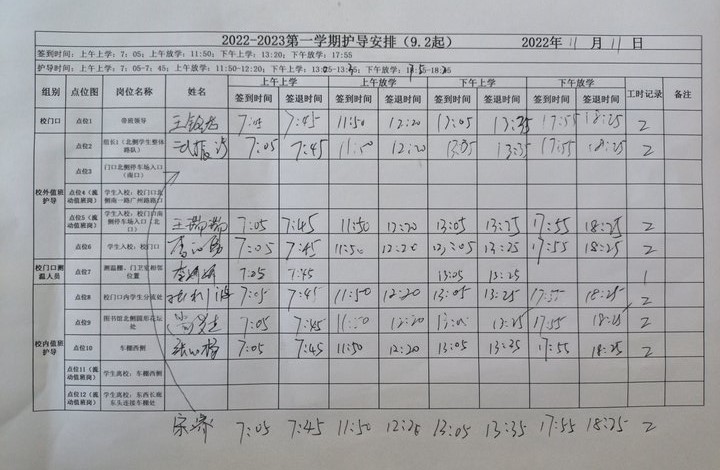 2022-2023第一学期护导安排（9.2起） 2022年 11 月 11 日
签到时间：上午上学：7：05；上午放学：11:50；下午上学：13:20；下午放学：17:55
护导时间：上午上学：7:05-7：45；上午放学：11:50-12:20；下午上学：13:05-13:35；下午放学：17:55-18:25
组别 点位图 岗位名称 姓名 上午上学 上午放学 下午上学 下午放学 工时记录 备注
签到时间 签退时间 签到时间 签退时间 签到时间 签退时间 签到时间 签退时间
校门口 点位1 带班领导 7:05 7:45 11:50 12:20 13:05 13:35 17:55 18:25 2
点位2 组长1（北侧学生整体路队） 7:05 7:45 11:50 12:20 13:05 13:35 17:55 18:25 2
点位3 门口北侧停车场入口（南口）
校外值班护导 点位4（流动值班岗） 学生入校：校门口北侧南一路广州路路口
点位5（流动值班岗） 学生入校：校门口南侧停车场入口（北口） 王瑞瑞 7:05 7:45 11:50 12:20 13:05 13:25 17:55 18:25 2
点位6 学生入校：校门口 7:05 7:45 11:50 12:20 13:05 13:25 17:55 18:25 2
校门口测温人员 点位7 测温棚、门卫室相邻位置 7:05 7:45 13:05 13:25 1
点位8 校门口内学生分流处 7:05 7:45 11:50 12:20 13:05 13:25 17:55 18:25 2
点位9 图书馆北侧圆形花坛处 7:05 7:45 11:50 12:20 13:05 13:25 17:55 18:25 2
校内值班护导 点位10 车棚西侧 7:05 7:45 11:50 12:20 13:05 13:25 17:55 18:25 2
点位11（流动值班岗） 学生离校：车棚西侧
点位12（流动值班岗） 学生离校：东西长廊东头连接车棚处
7:05 7:45 11:50 12:20 13:05 13:35 17:55 18:25 2